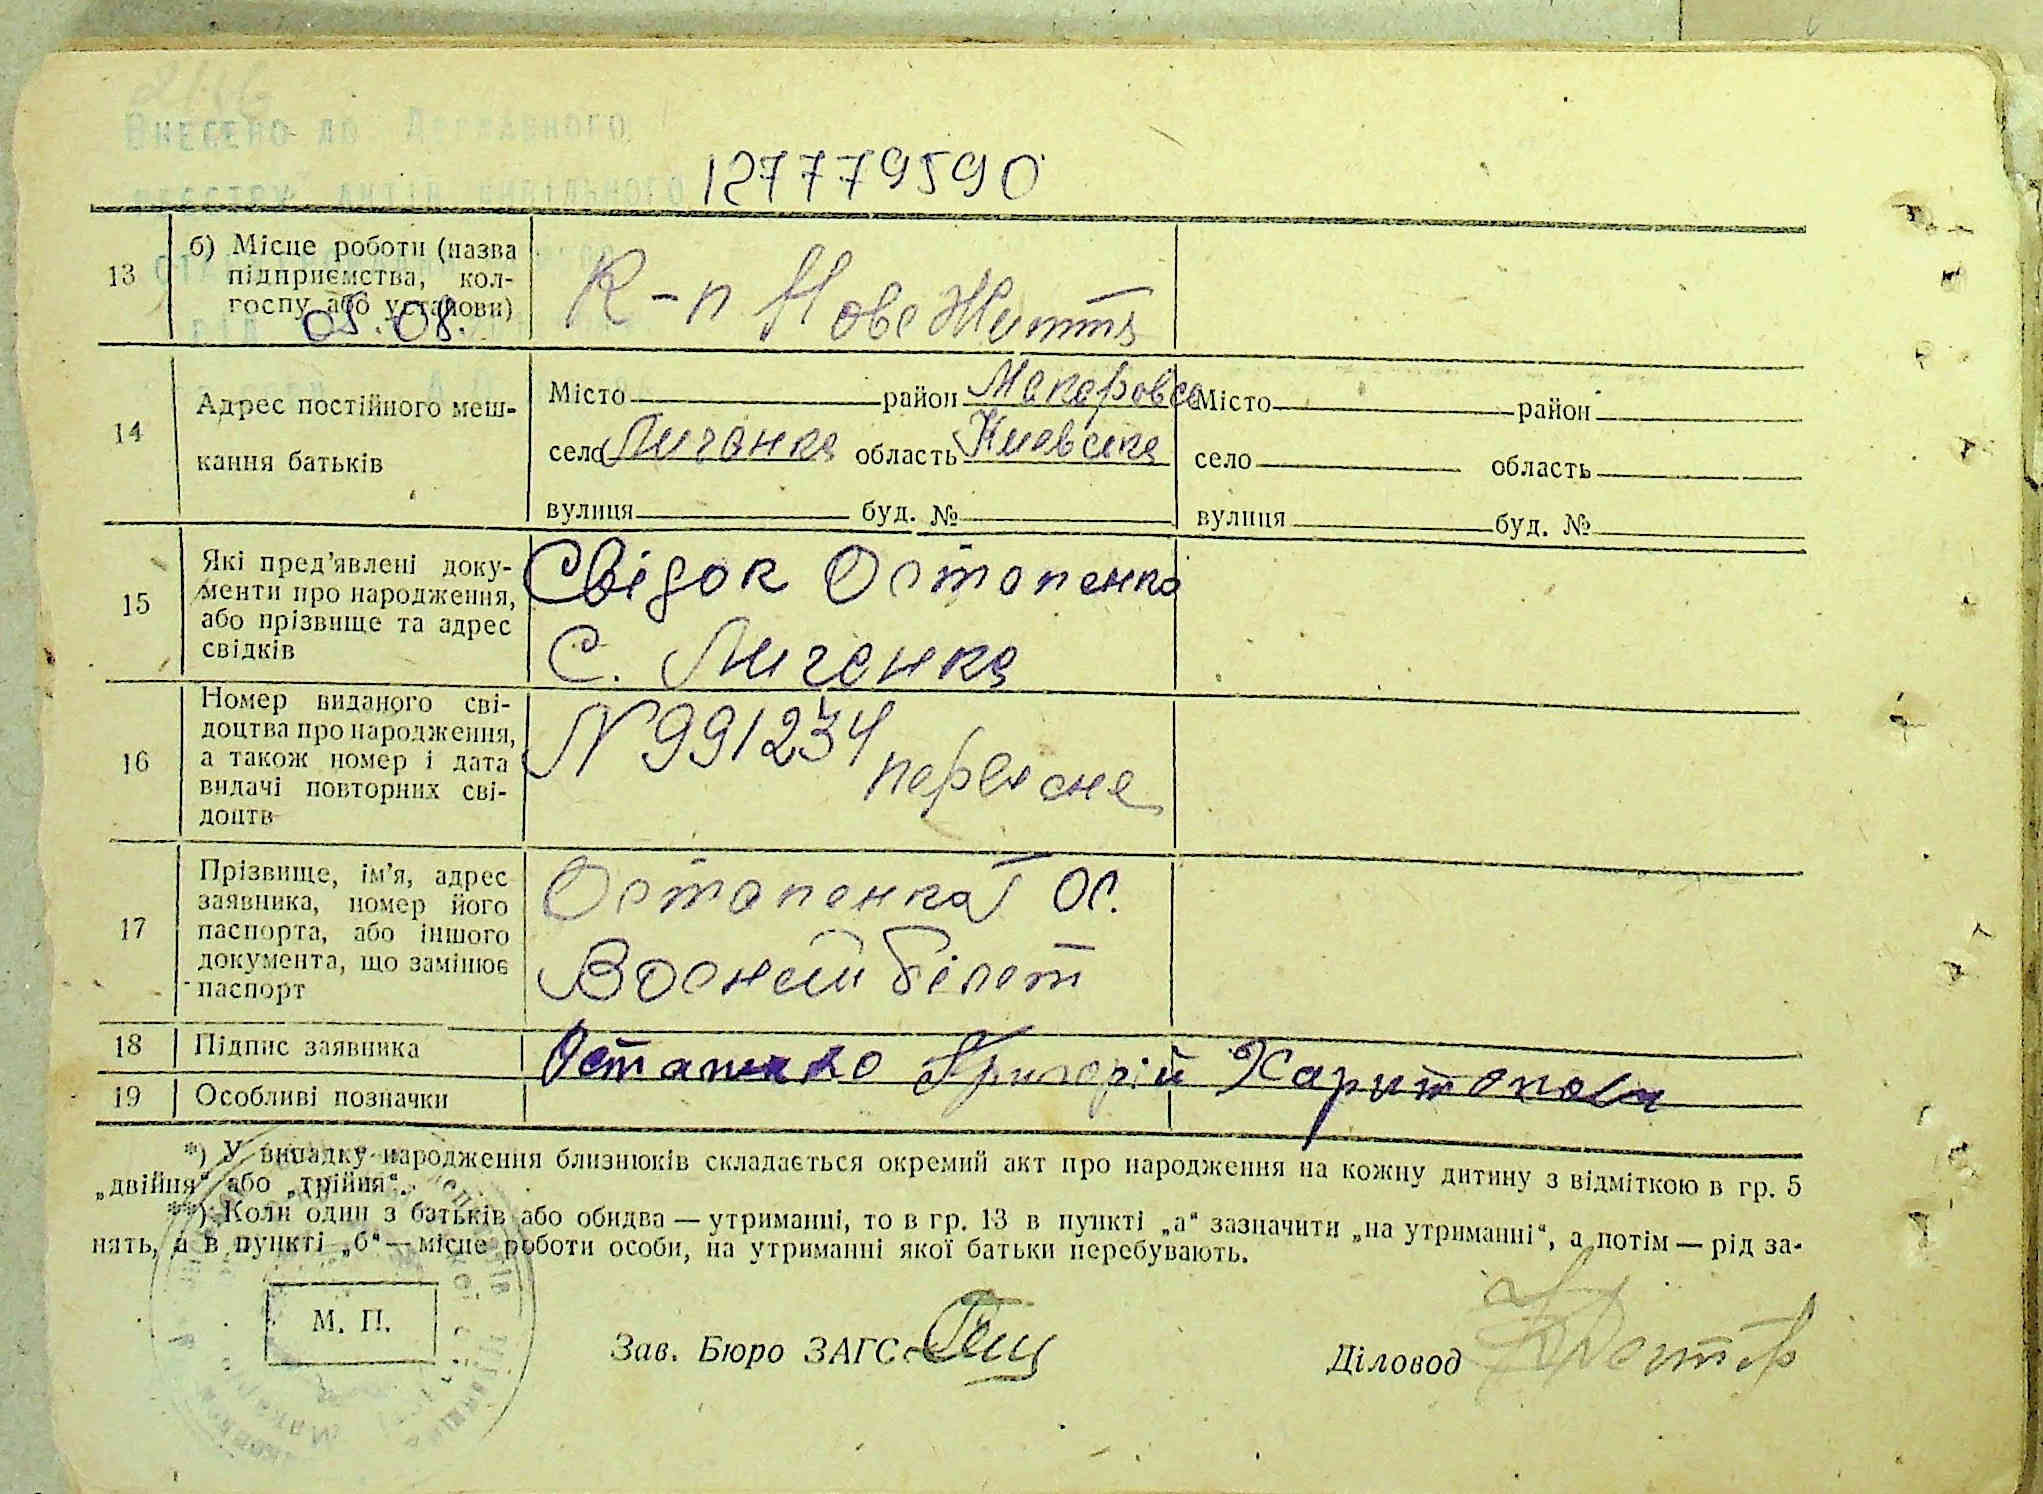 Внесено до Державного
реєстру актів цивільного
127779590
13
б) Місце роботи (назва
підприємства, кол-
госпу або установи)
05.08.
К-п Нове Життя
14
Адрес постійного меш-
кання батьків
Місто район Макаровск Місто район
село Личанка область Киевська село область
вулиця буд. № вулиця буд. №
15
Які пред'явлені доку-
менти про народження,
або прізвище та адрес
свідків
Свідок Остапенко
С. Личанка
16
Номер виданого сві-
доцтва про народження,
а також номер і дата
видачі повторних сві-
доцтв
N 991234
первісне
17
Прізвище, ім'я, адрес
заявника, номер його
паспорта, або іншого
документа, що замінює
паспорт
Остапенка
білет
18 Підпис заявника
Григорій
19 Особливі позначки
*) У випадку народження близнюків складається окремий акт про народження на кожну дитину з відміткою в гр. 5
„двійня“ або „трійня“.
**) Коли один з батьків або обидва — утриманці, то в гр. 13 в пункті „а“ зазначити „на утриманні“, а потім — рід за-
нять, а в пункті „б“ — місце роботи особи, на утриманні якої батьки перебувають.
М. П.
Зав. Бюро ЗАГС
Діловод